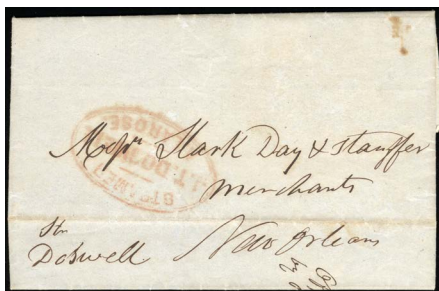 Messrs Stark Day & Stauffer
Merchants
New Orleans
Str
Doswell